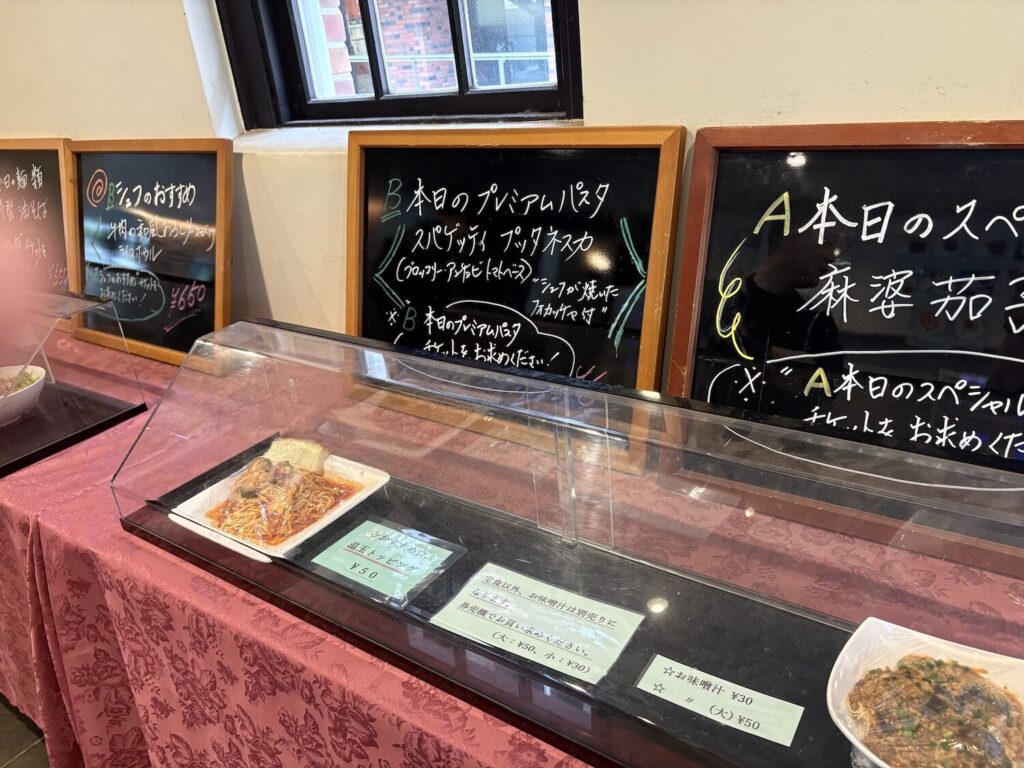 今日の麺類
油そば
B シェフのおすすめ
牛肉の和風おろしソースがけ
"シェフのおすすめ"チケットを
お求めください!
¥650
B 本日のプレミアムパスタ
スパゲッティ プッタネスカ
(ブロッコリー・アンチョビ トマトベース)
"シェフが焼いた
フォカッチャ付"
※"B 本日のプレミアムパスタ
チケットをお求めください!
A 本日のスペ
麻婆茄子
※"A 本日のスペシャル
チケットをお求めくだ
☆おすすめ☆
温玉トッピング
¥50
定食以外、お味噌汁は別売りに
なります。
券売機でお買い求めください。
(大:¥50、小:¥30)
☆お味噌汁 ¥30
☆ 〃 (大)¥50